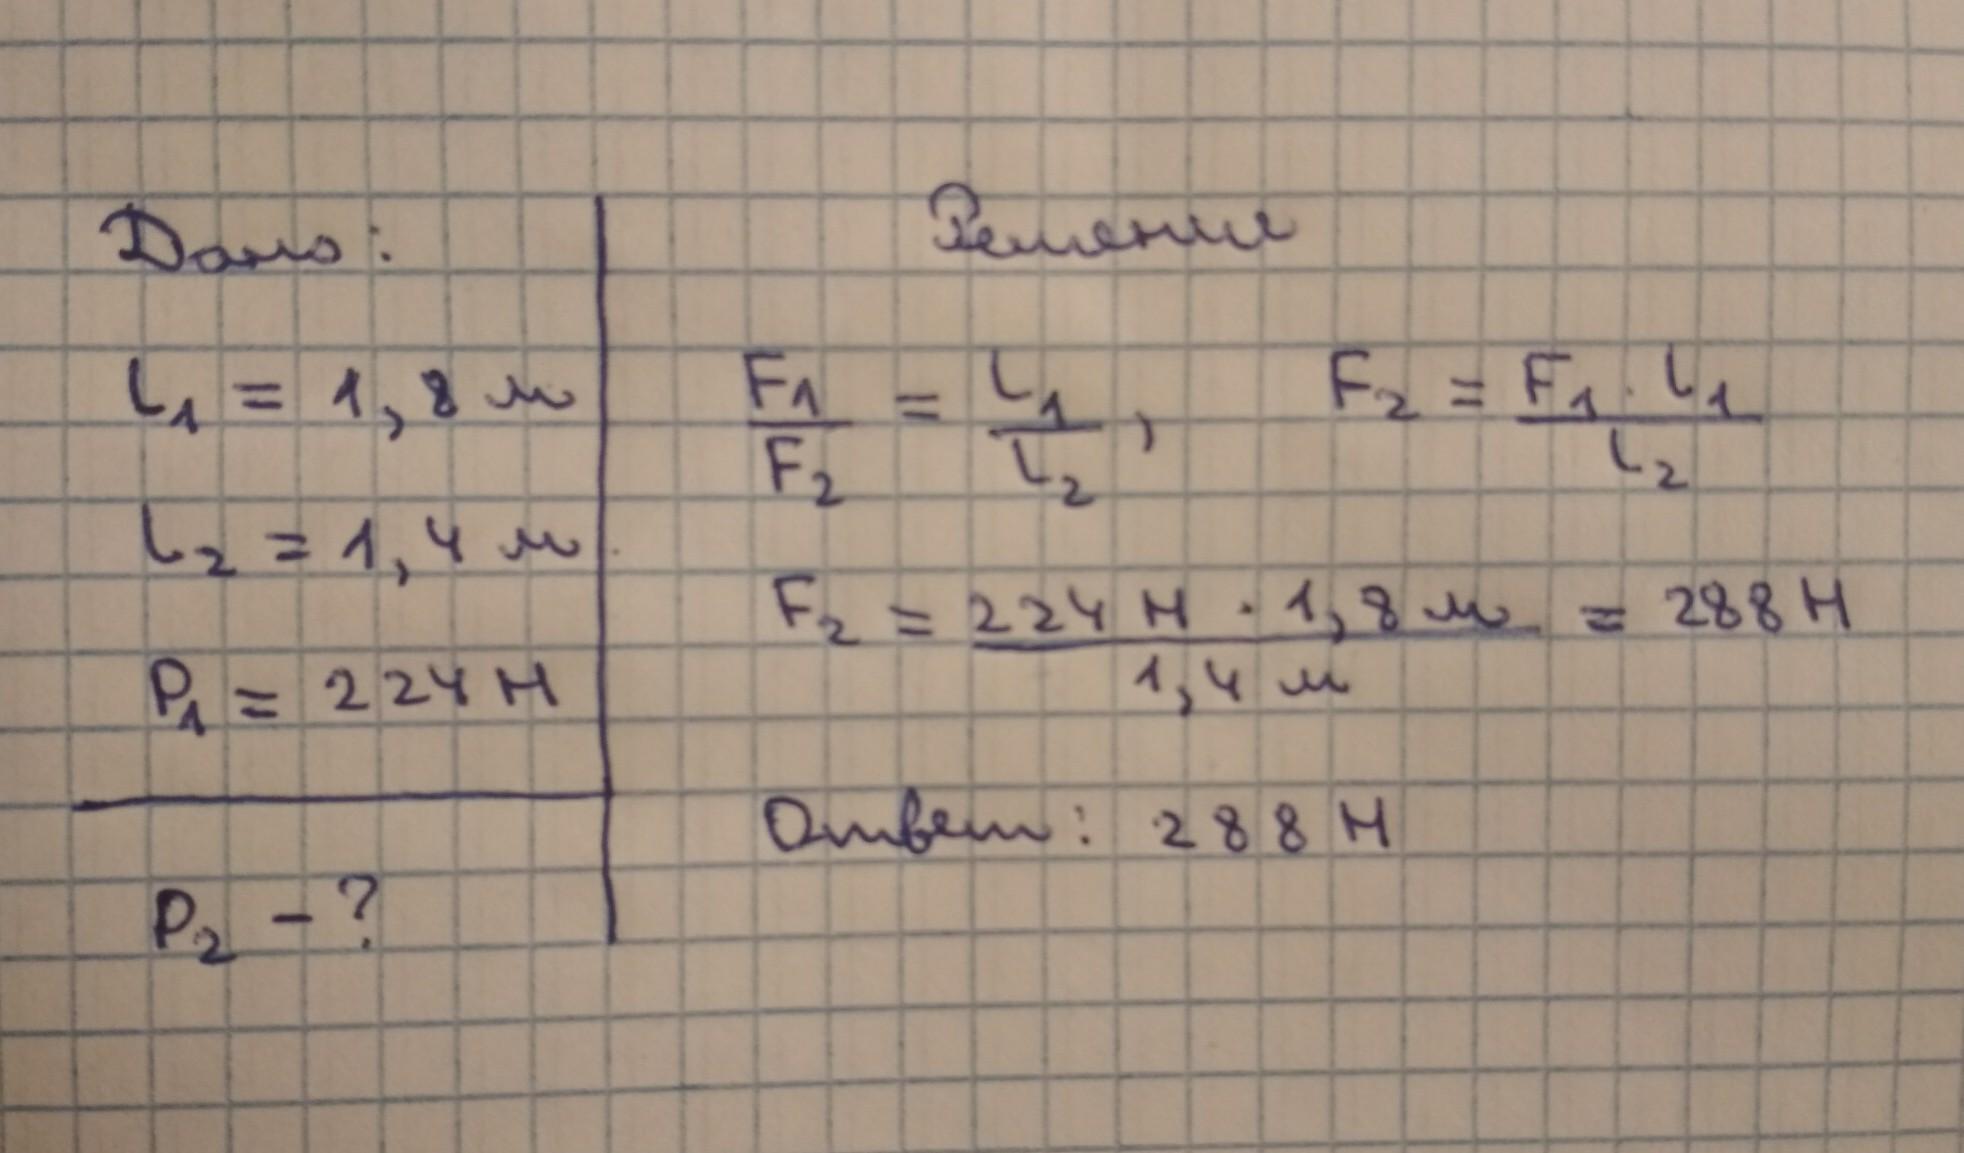 Дано:
l₁ = 1,8 м
l₂ = 1,4 м
P₁ = 224 Н
P₂ - ?
Решение
F₁/F₂ = l₁/l₂, F₂ = F₁ · l₁/l₂
F₂ = 224 Н · 1,8 м/1,4 м = 288 Н
Ответ: 288 Н